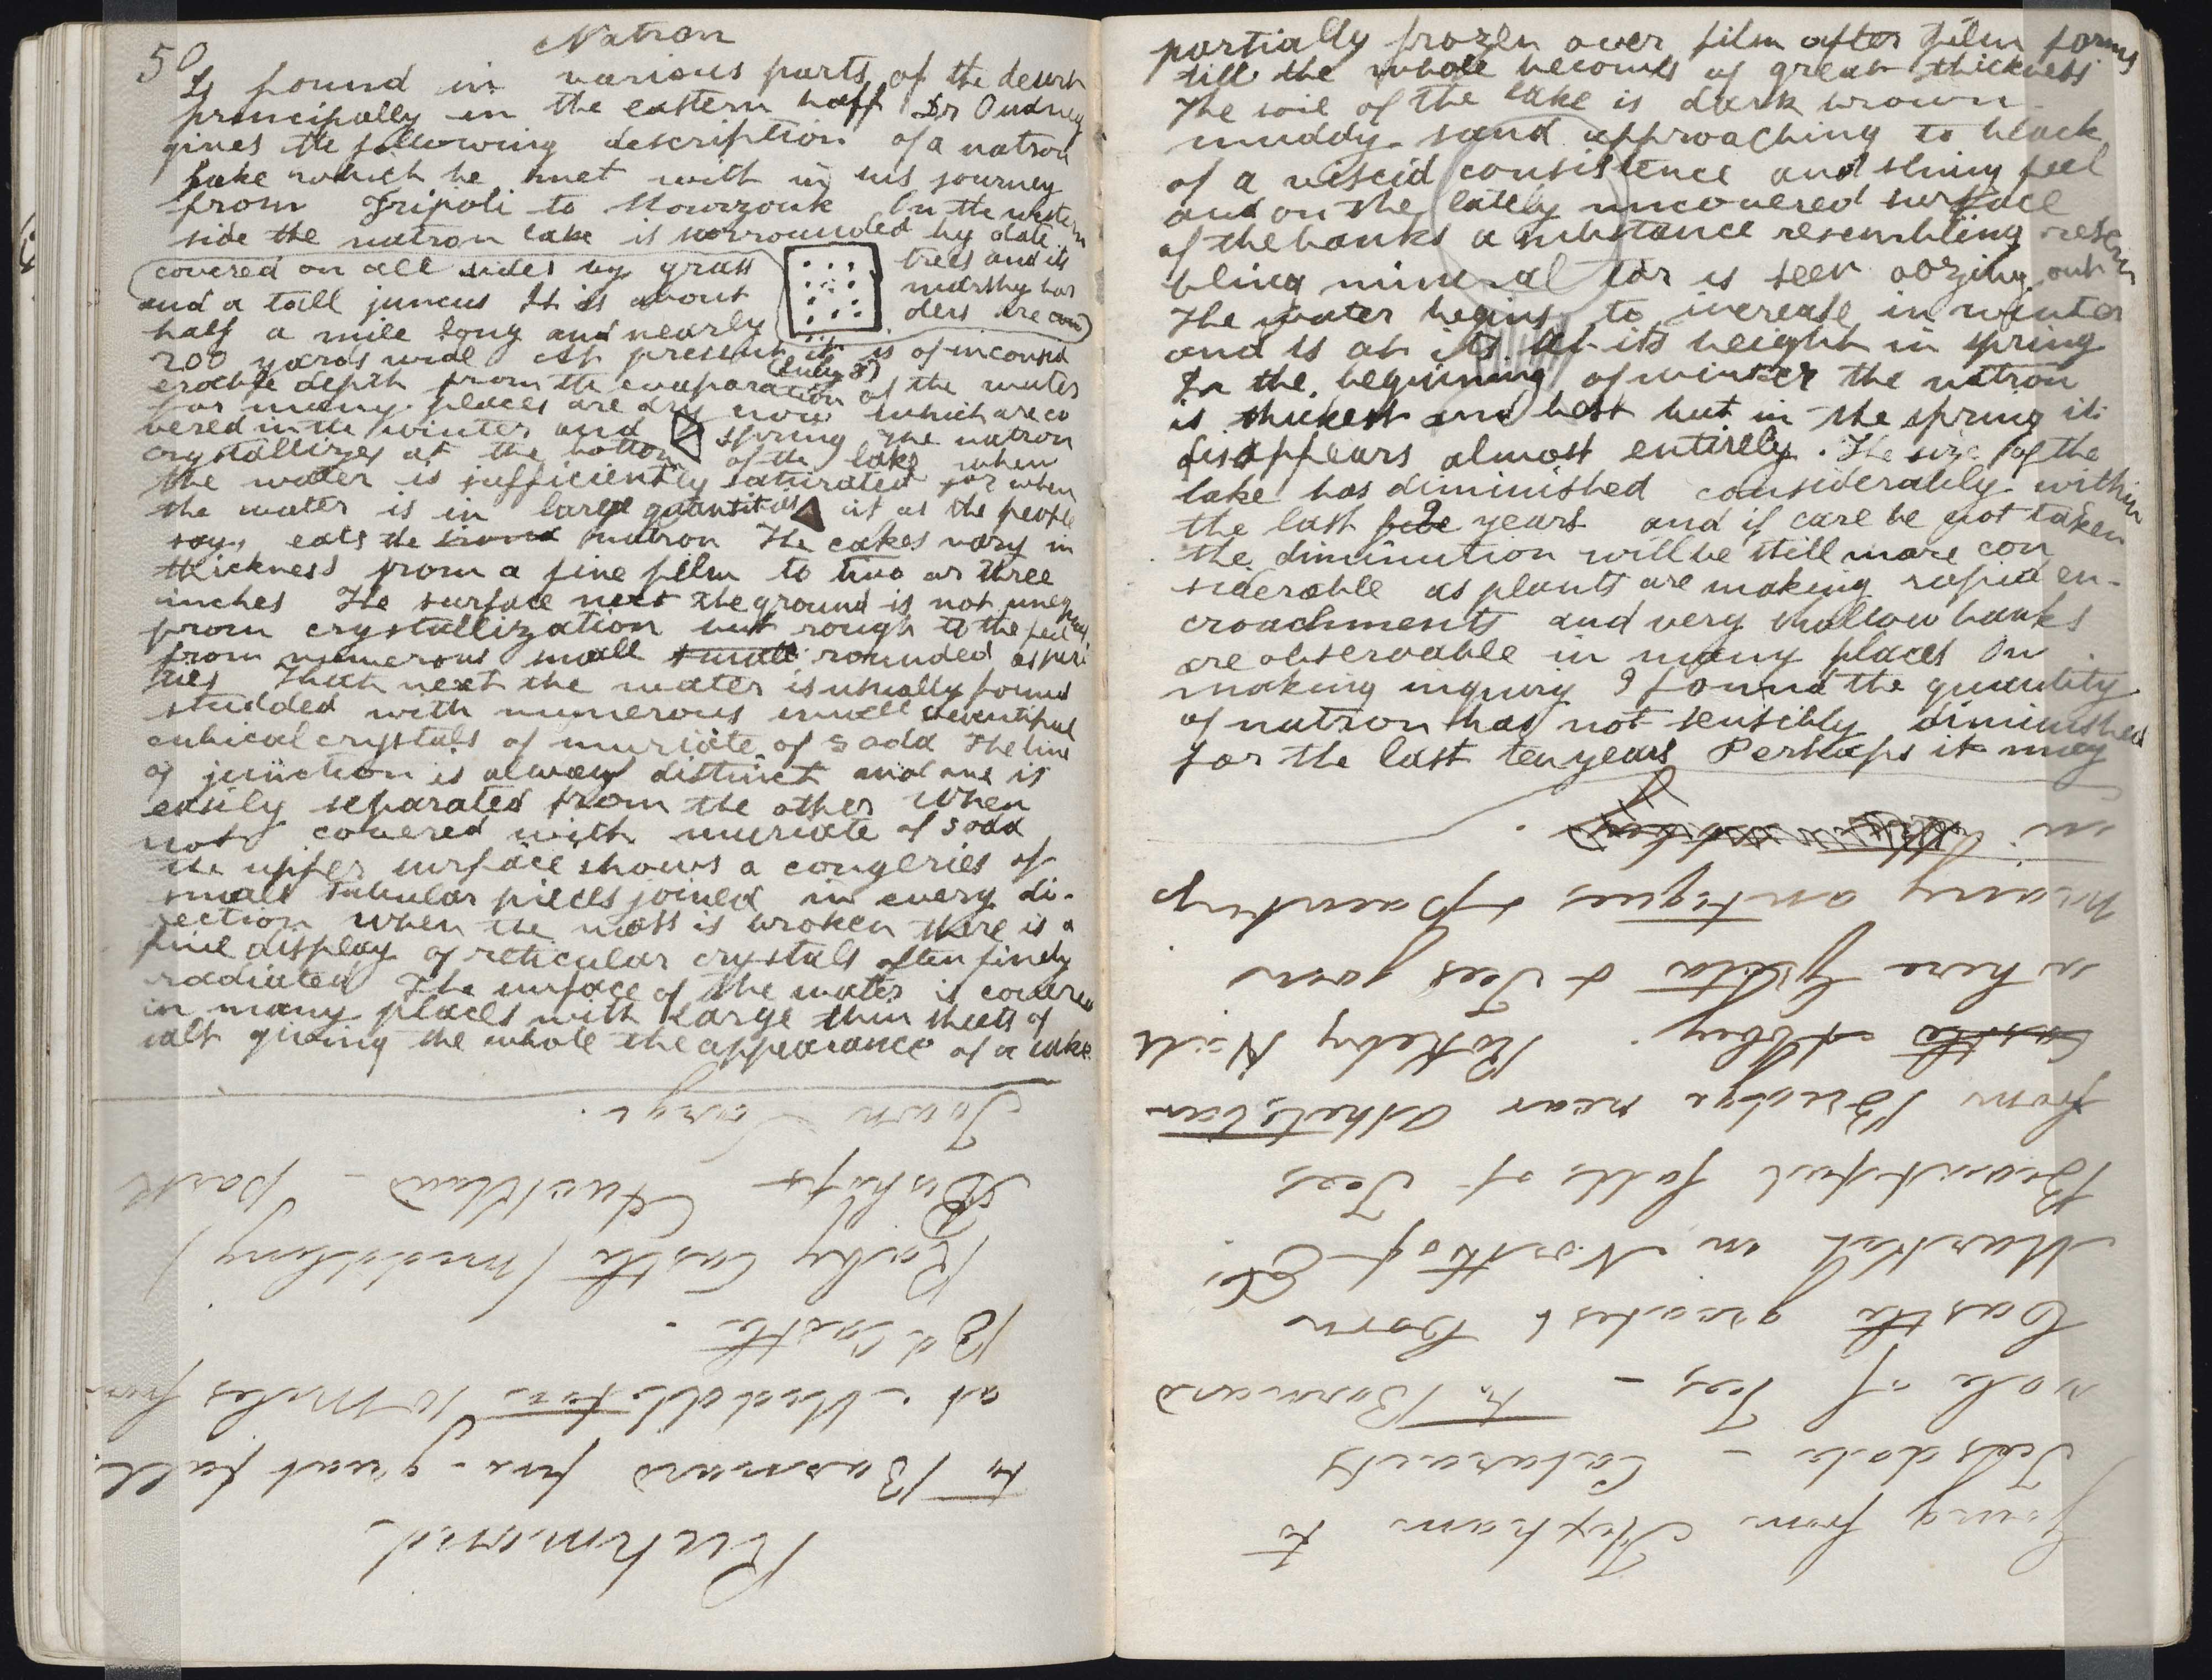 50
Natron
Is found in various parts of the desert
principally in the eastern half Dr Oudney
gives the following description of a natron
lake which he met with in his journey
from Tripoli to Mourzouk On the western
side the natron lake is sorrounded by date
trees and its
marshy bor
ders are cov
covered on all sides by grass
and a tall juncus It is about
half a mile long and nearly
200 yards wide At present it is of inconsid
(July 8)
erable depth from the evaporation of the water
for many places are dry now which are co
vered in the winter and spring The natron
crystallizes at the bottom of the lake when
the water is sufficiently saturated for when
the water is in large quantities it as the people
say, eats the natron The cakes vary in
thickness from a fine film to two or three
inches The surface next the ground is not unequal
from crystallization but rough to the feel
from numerous small small rounded asperi
ties That next the water is usually found
studded with numerous small beautiful
cubical crystals of muriate of soda The line
of junction is always distinct and one is
easily separated from the other When
not covered with muriate of soda
the upper surface shows a congeries of
small tabular pieces joined in every di-
rection when the mass is broken there is a
fine display of reticular crystals often finely
radiated The surface of the water is covered
in many places with large thin sheets of
salt giving the whole the appearance of a lake
Richmond
to Barnard fine - great fall
at Middleton 10 Miles from
Bd Castle.
Raby Castle (middling)
Bishops Auckland - park
Town Large.
partially frozen over film after film forms
till the whole becomes of great thickness
The soil of the lake is dark brown
muddy sand approaching to black
of a viscid consistence and slimy feel
and on the lately uncovered surface
of the banks a substance resembling resem
bling mineral tar is seen oozing out
The water begins to increase in winter
and is at its at its height in spring
In the beginning of winter the natron
is thickest and best but in the spring it
disappears almost entirely. The size of the
lake has diminished considerably within
the last years and if care be not taken
the diminution will be still more con
siderable as plants are making rapid en-
croachments and very shallow banks
are observable in many places On
making inquiry I found the quantity
of natron has not sensibly diminished
for the last ten years Perhaps it may
going from Hexham to
Teesdale - Cataracts
vale of Tees - to Barnard
Castle greatest Corn
Market in North of E.
Beautiful falls of Tees
from Bridge near
Castle Abbey. Rokeby Hall
where Greta & Tees join
many antiques & paintings
in